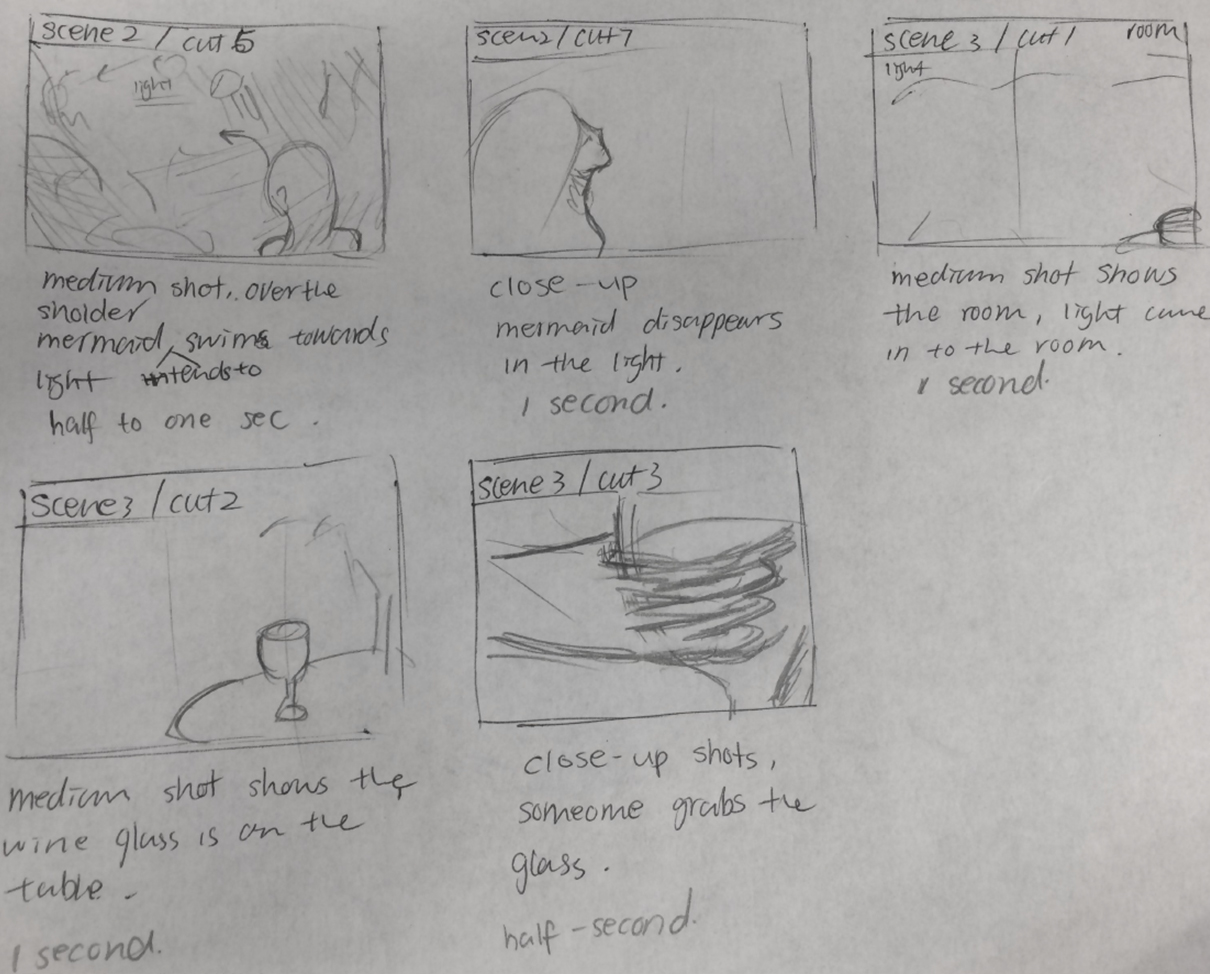 scene 2 / cut 5
light
medium shot, over the
sholder
mermaid swims towards
intends to
light
half to one sec.
scen2/cut7
close-up
mermaid disappears
in the light.
1 second.
scene 3 / cut 1 room
light
medium shot shows
the room, light came
in to the room.
1 second.
scene3 / cut2
medium shot shows the
wine glass is on the
table.
1 second.
scene 3 / cut 3
close-up shots,
someome grabs the
glass.
half-second.